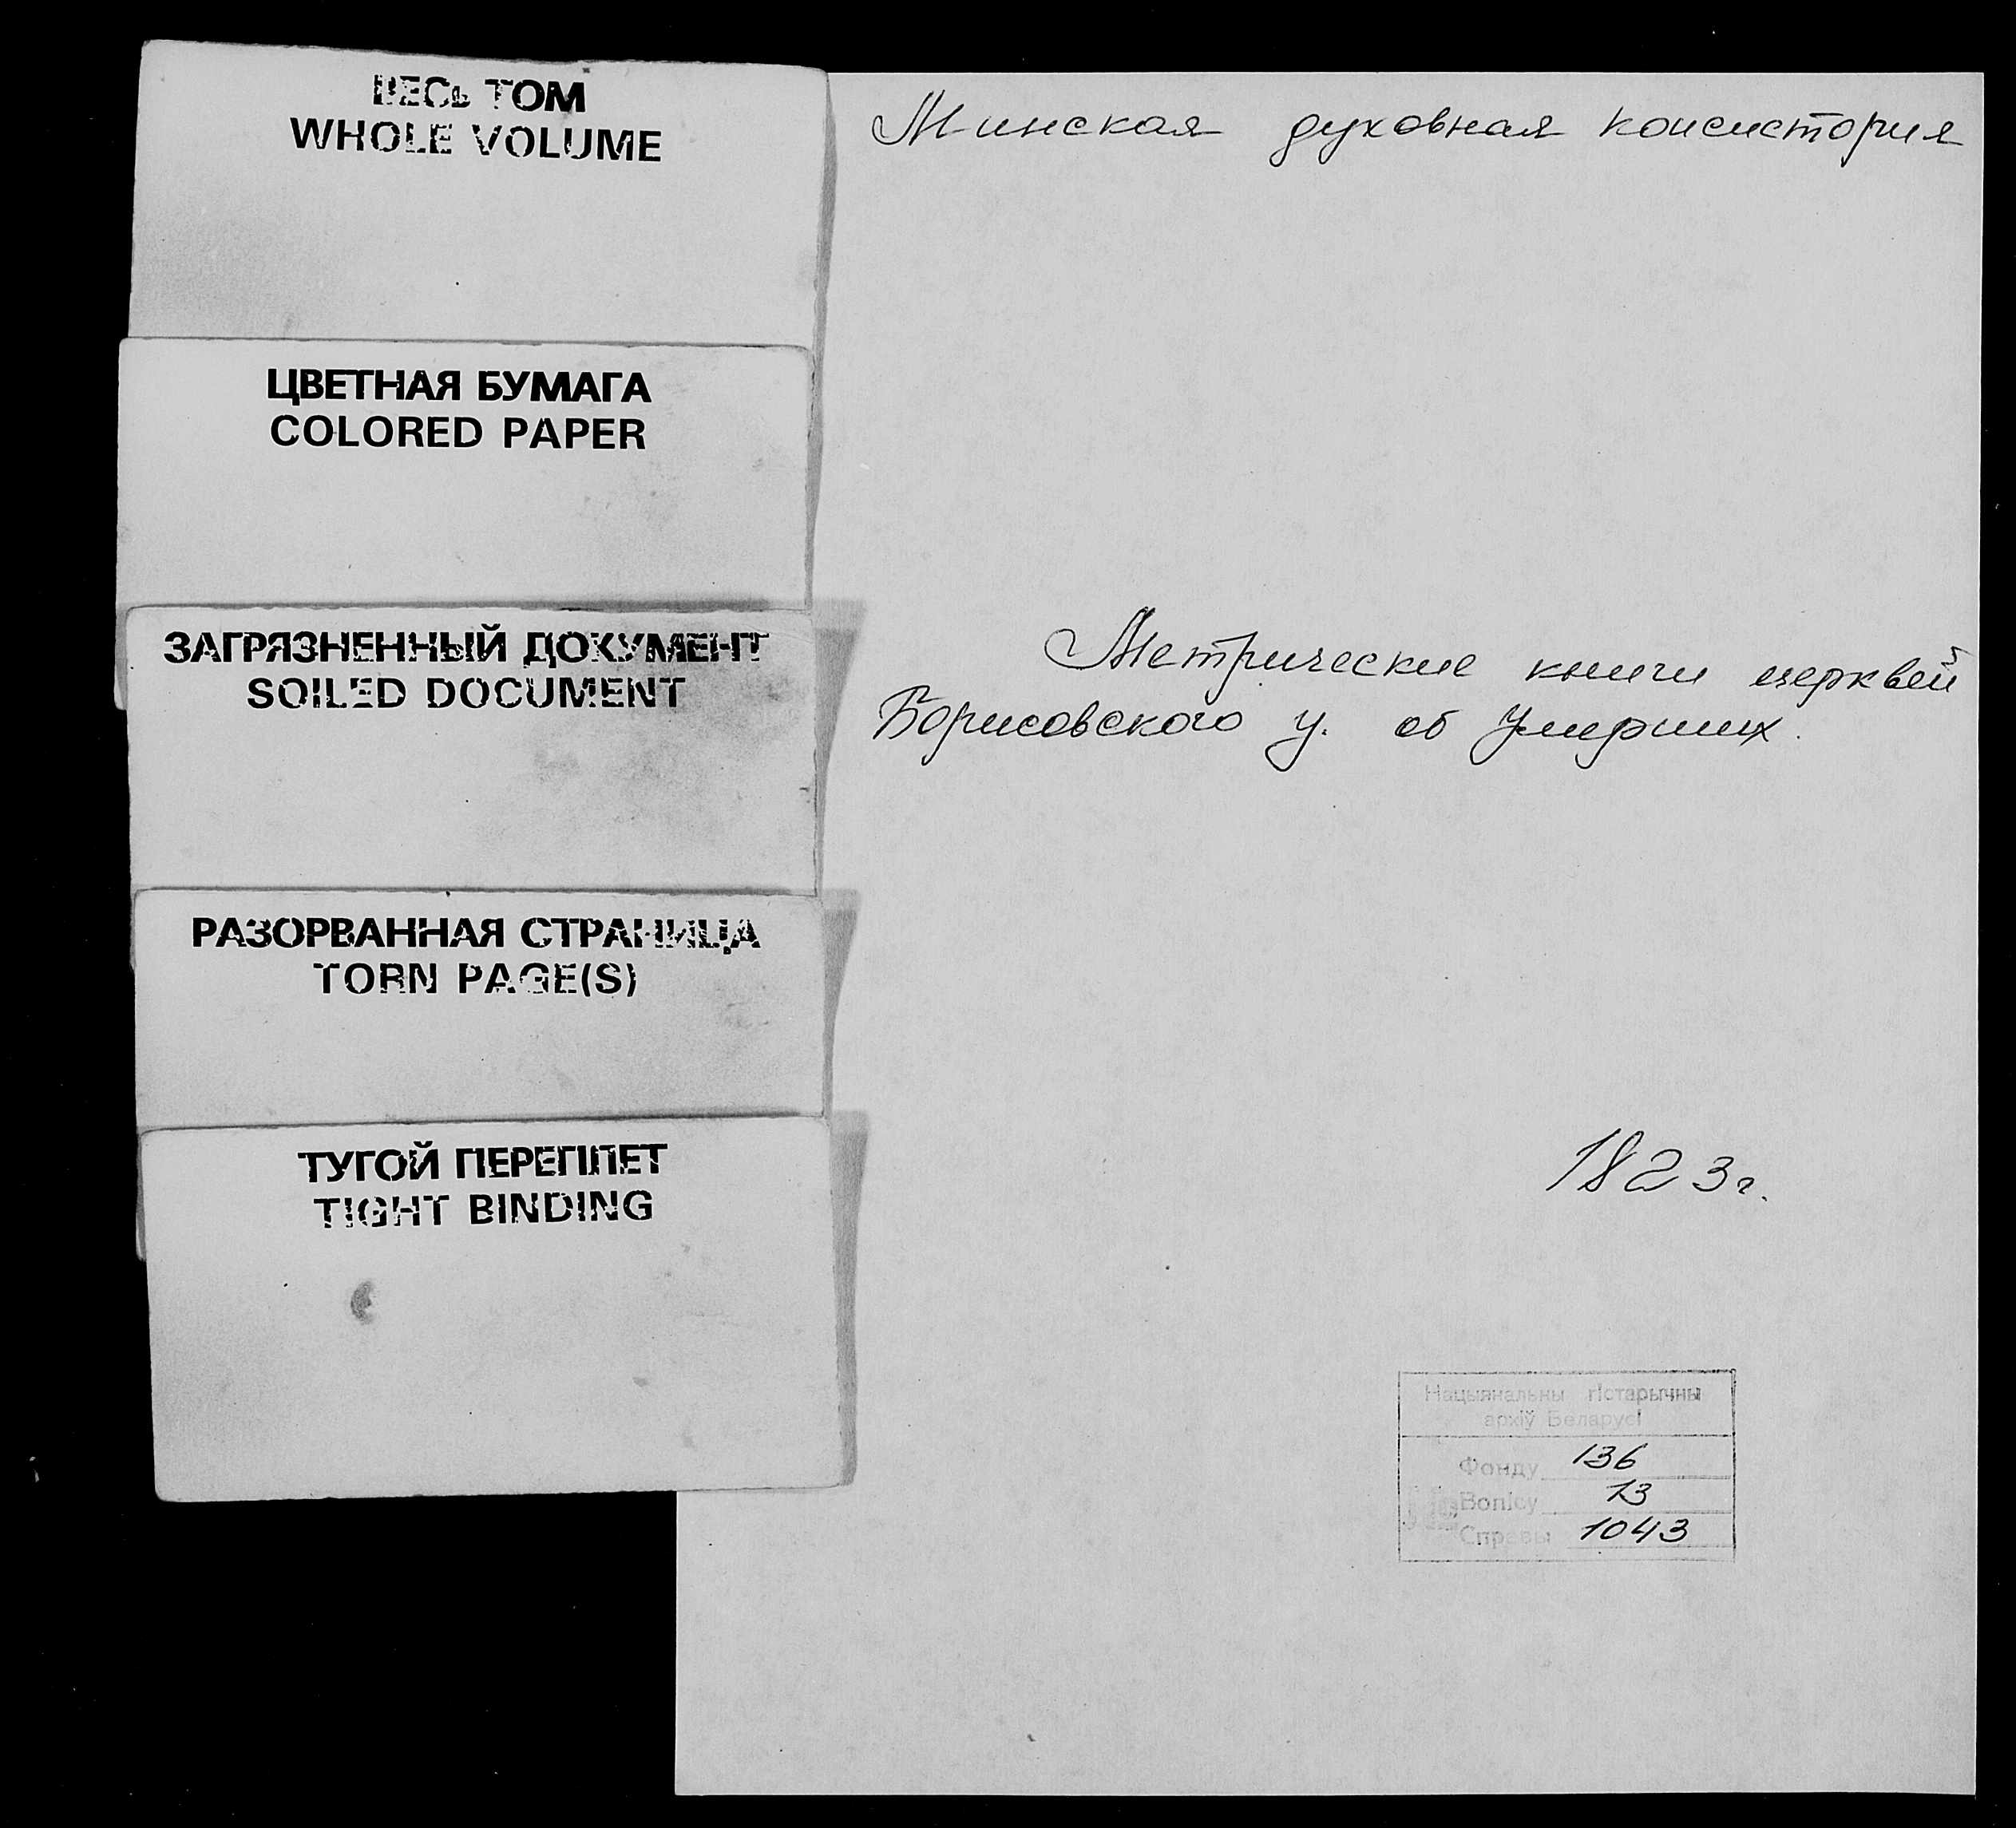 ВЕСЬ ТОМ
WHOLE VOLUME
ЦВЕТНАЯ БУМАГА
COLORED PAPER
ЗАГРЯЗНЕННЫЙ ДОКУМЕНТ
SOILED DOCUMENT
РАЗОРВАННАЯ СТРАНИЦА
TORN PAGE(S)
ТУГОЙ ПЕРЕПЛЕТ
TIGHT BINDING
Минская духовная консистория
Метрические книги церквей
Борисовского у. об умерших.
1823 г.
Нацыянальны гістарычны
архіў Беларусі
Фонду 136
Вопісу 13
Справы 1043